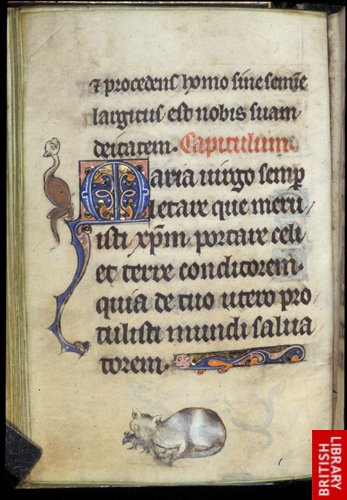 ⁊ procedens homo sine semīe
largitus est nobis suam
deitatem. Capitulum
Maria uirgo semꝑ
letare que meru
isti xp̄m portare celi
et terre conditorem.
quia de tuo utero pro
tulisti mundi salua
torem.
BRITISH
LIBRARY